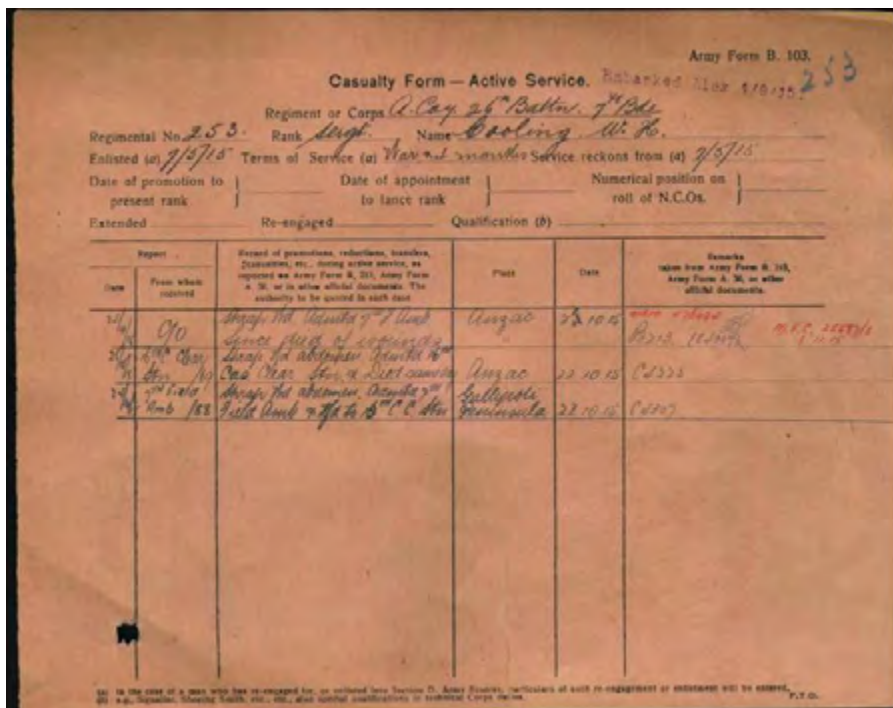 Army Form B. 103.
Casualty Form — Active Service.
Embarked Alex 4/9/15.
253
Regiment or Corps A. Coy. 26th Battn. 7th Bde
Regimental No. 253. Rank Sergt. Name Cooling W. H.
Enlisted (a) 7/5/15 Terms of Service (a) War & 4 months Service reckons from (a) 7/5/15
Date of promotion to present rank
Date of appointment to lance rank
Numerical position on roll of N.C.Os.
Extended Re-engaged Qualification (b)
Report
Date
From whom received
Record of promotions, reductions, transfers, casualties, etc., during active service, as reported on Army Form B. 213, Army Form A. 36, or in other official documents. The authority to be quoted in each case
Place
Date
Remarks taken from Army Form B. 213, Army Form A. 36, or other official documents.
Shrap. Wd. Admitted 7th F Amb Anzac 10.15
since died of wounds
Shrap Wd abdomen Admitted
Cas Clear Stn & Died same day Anzac 22.10.15
7th Field Shrap Wd abdomen, Admitted 7th Gallipoli
Amb /88 Field Amb & to C C Stn Peninsula 22.10.15
(a) In the case of a man who has re-engaged for, or enlisted into Section D, Army Reserve, particulars of such re-engagement or enlistment will be entered.
(b) e.g., Signaller, Shoeing Smith, etc., etc., also special qualifications in technical Corps duties.
P.T.O.